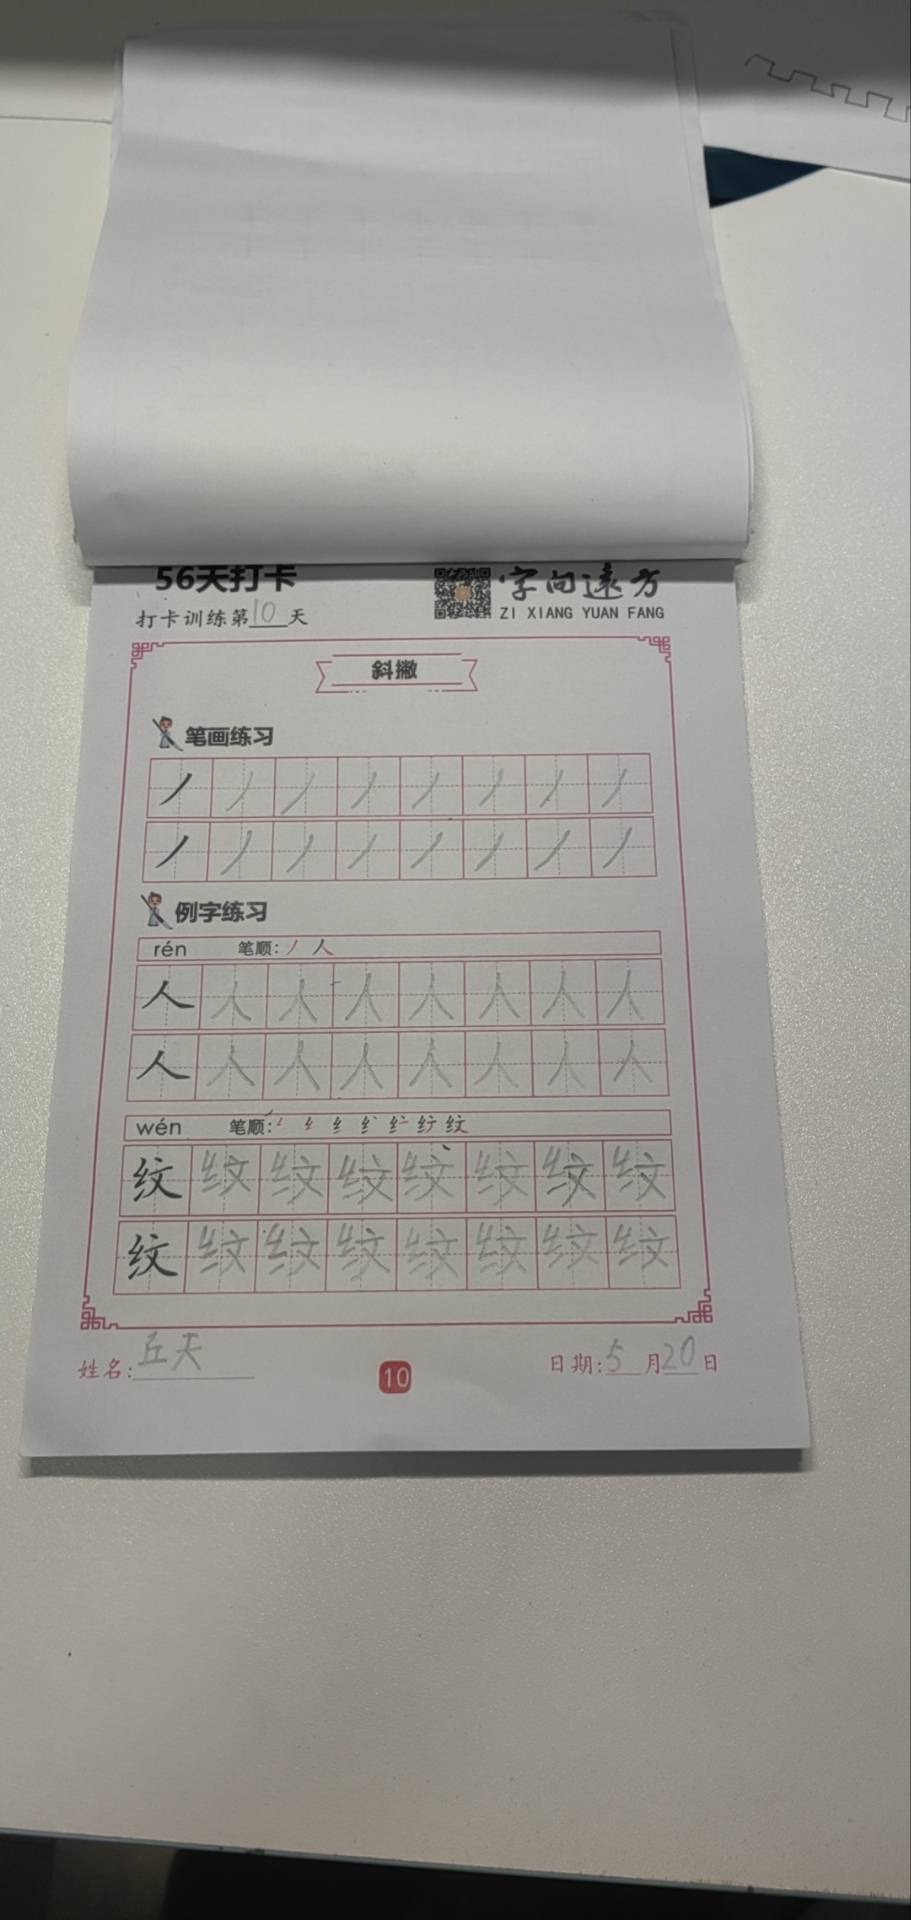 56天打卡
字向远方
打卡训练第10天
ZI XIANG YUAN FANG
斜撇
笔画练习
丿丿丿丿丿丿丿丿
丿丿丿丿丿丿丿丿
例字练习
rén 笔顺:丿人
人人人人人人人人
人人人人人人人人
wén 笔顺: 纟 纹
纹纹纹纹纹纹纹纹
纹纹纹纹纹纹纹纹
姓名:丘天
10
日期:5月20日